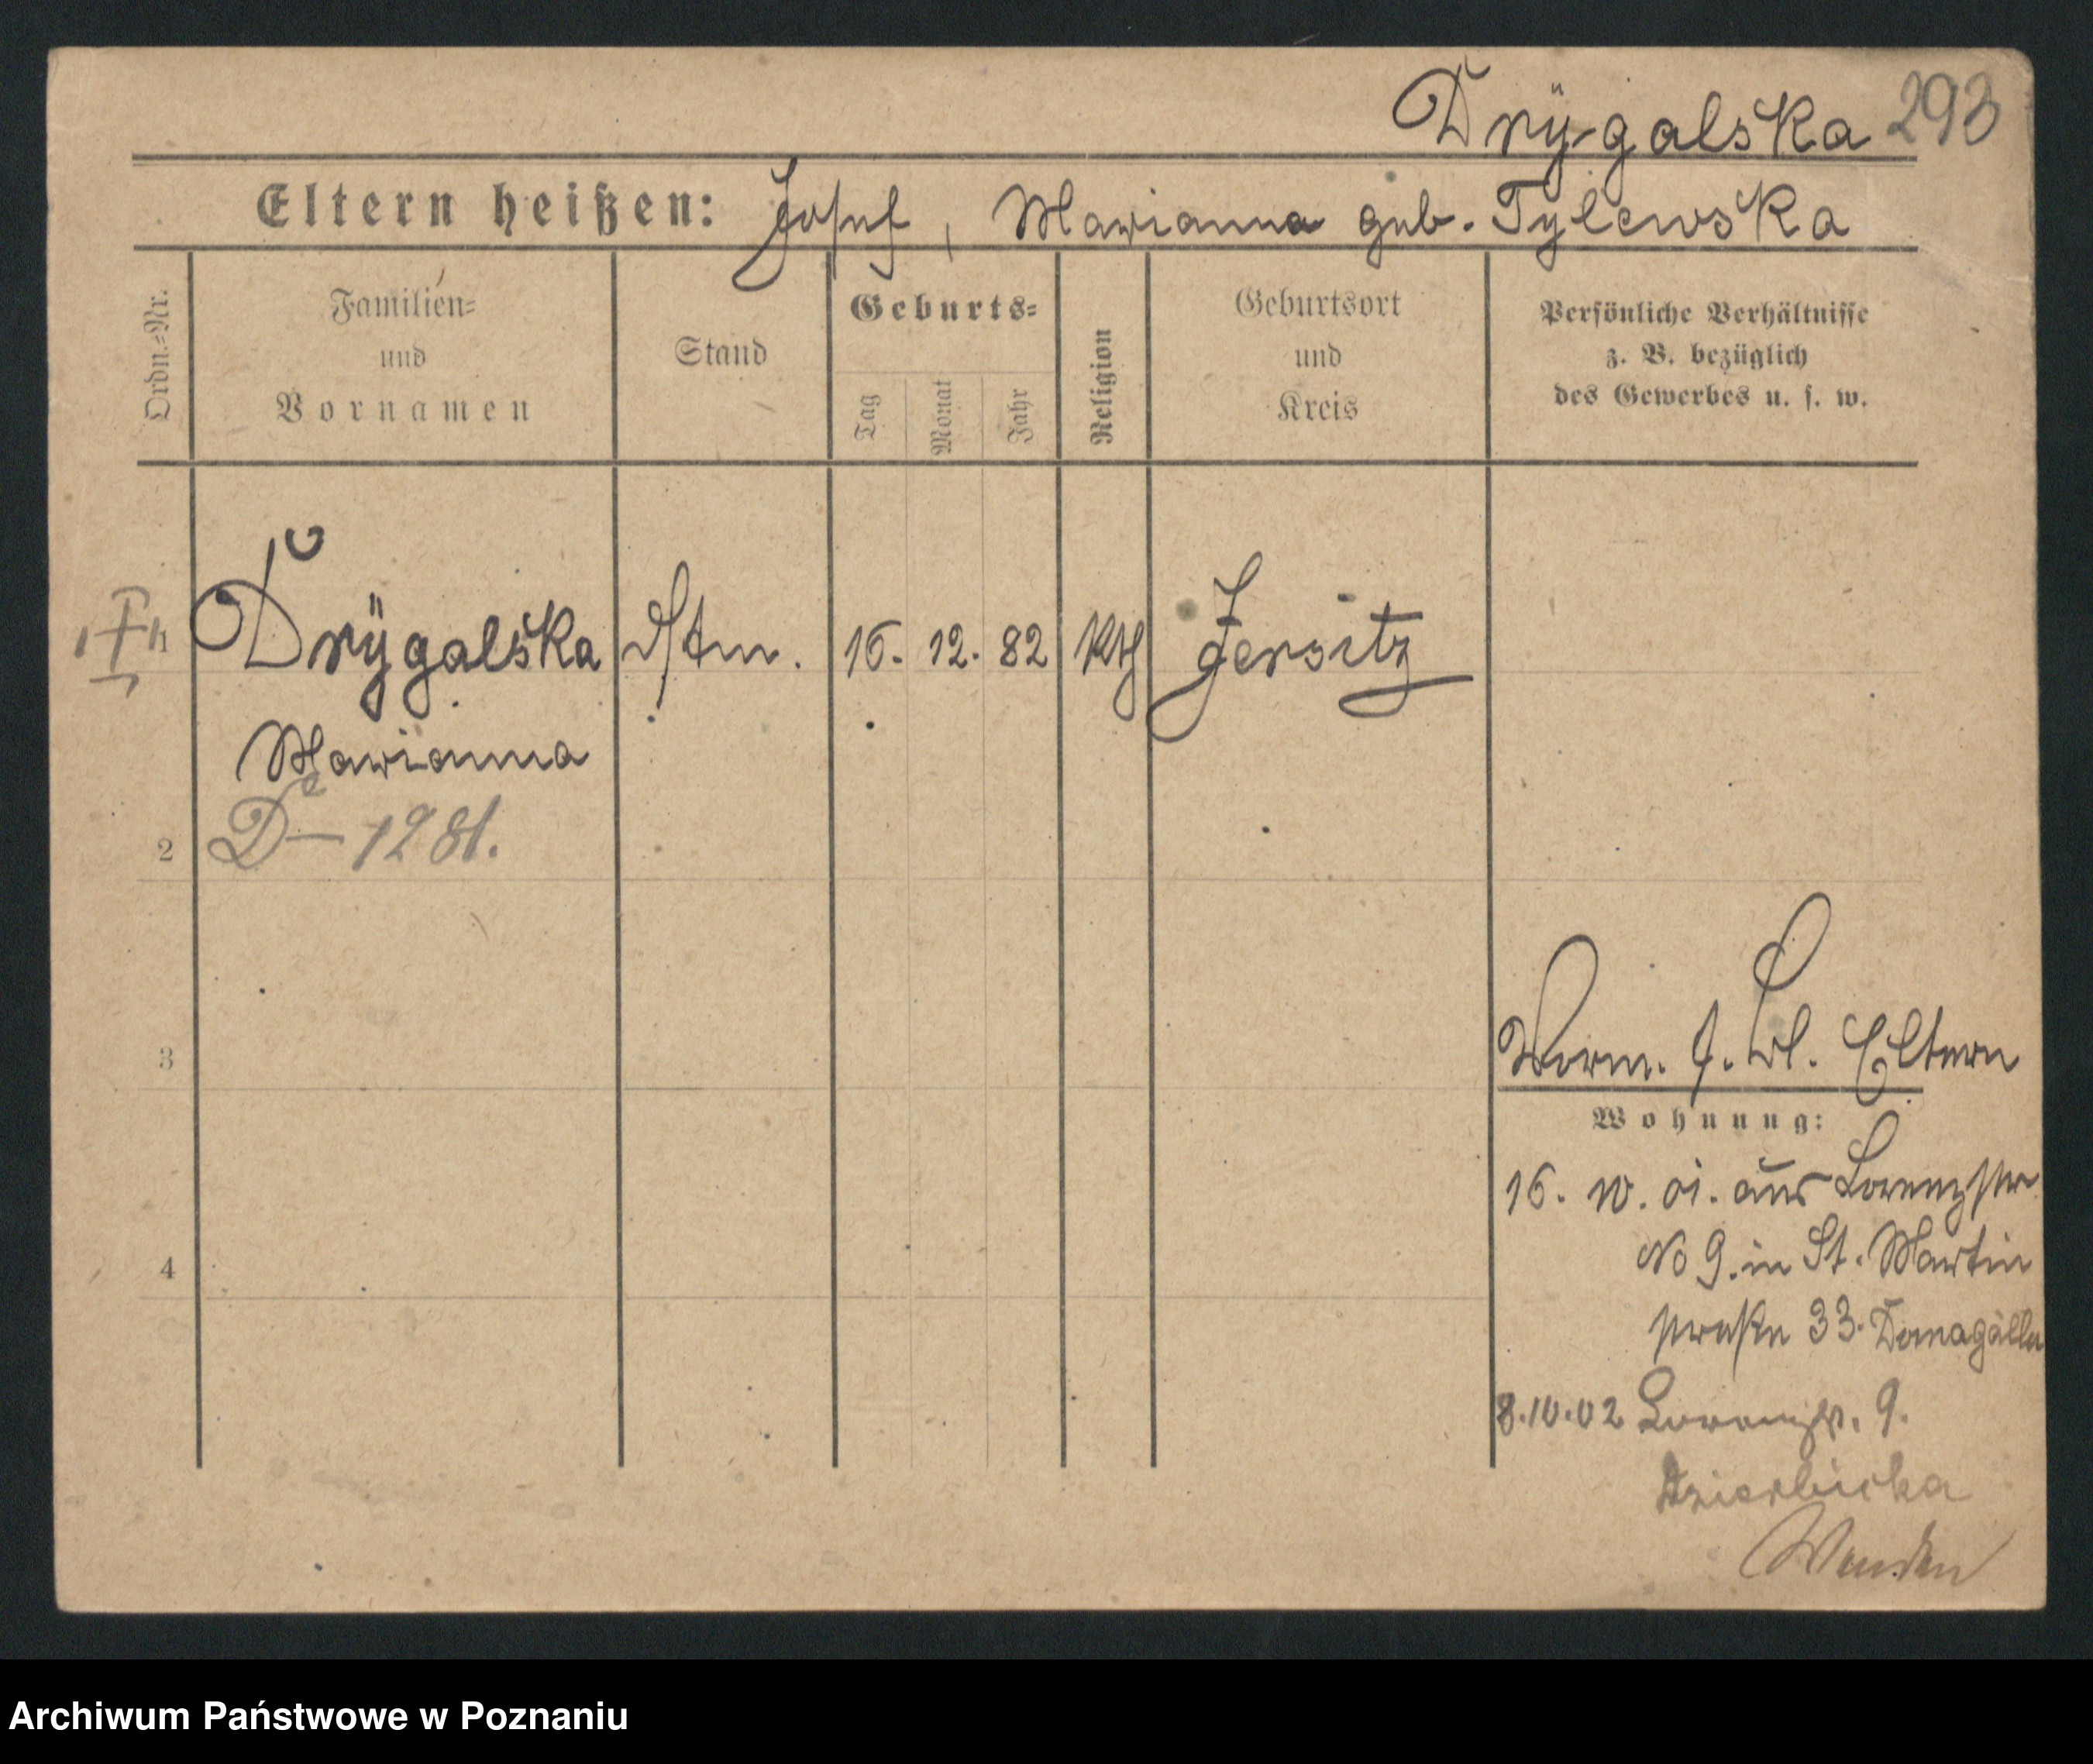 Drÿgalska 293
Eltern heißen: Josef, Marianna geb. Tylewska
Ordn.-Nr.
Familien-
und
Vornamen
Stand
Geburts-
Tag
Monat
Jahr
Religion
Geburtsort
und
Kreis
Persönliche Verhältnisse
z. B. bezüglich
des Gewerbes u. s. w.
Drÿgalska
16. 12. 82
Kth
Jersitz
Marianna
2
D 1281.
3
Vorm. s. Bl. Eltern
Wohnung:
16. 10. 01. aus Lorenzstr
No 9. in St. Martin
straße 33. Domagalla
4
8.10.02 Lorenzstr. 9.
Dzierbicka
Wenden
Archiwum Państwowe w Poznaniu